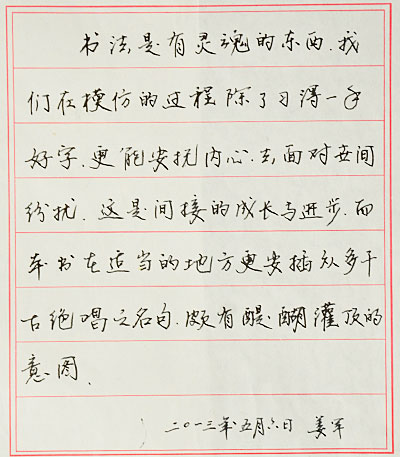 书法是有灵魂的东西.我
们在模仿的过程除了习得一手
好字.更能安抚内心.去面对世间
纷扰.这是间接的成长与进步.而
本书在适当的地方更安插众多千
古绝唱之名句.颇有醍醐灌顶的
意图.
二〇一三年五月六日 姜军